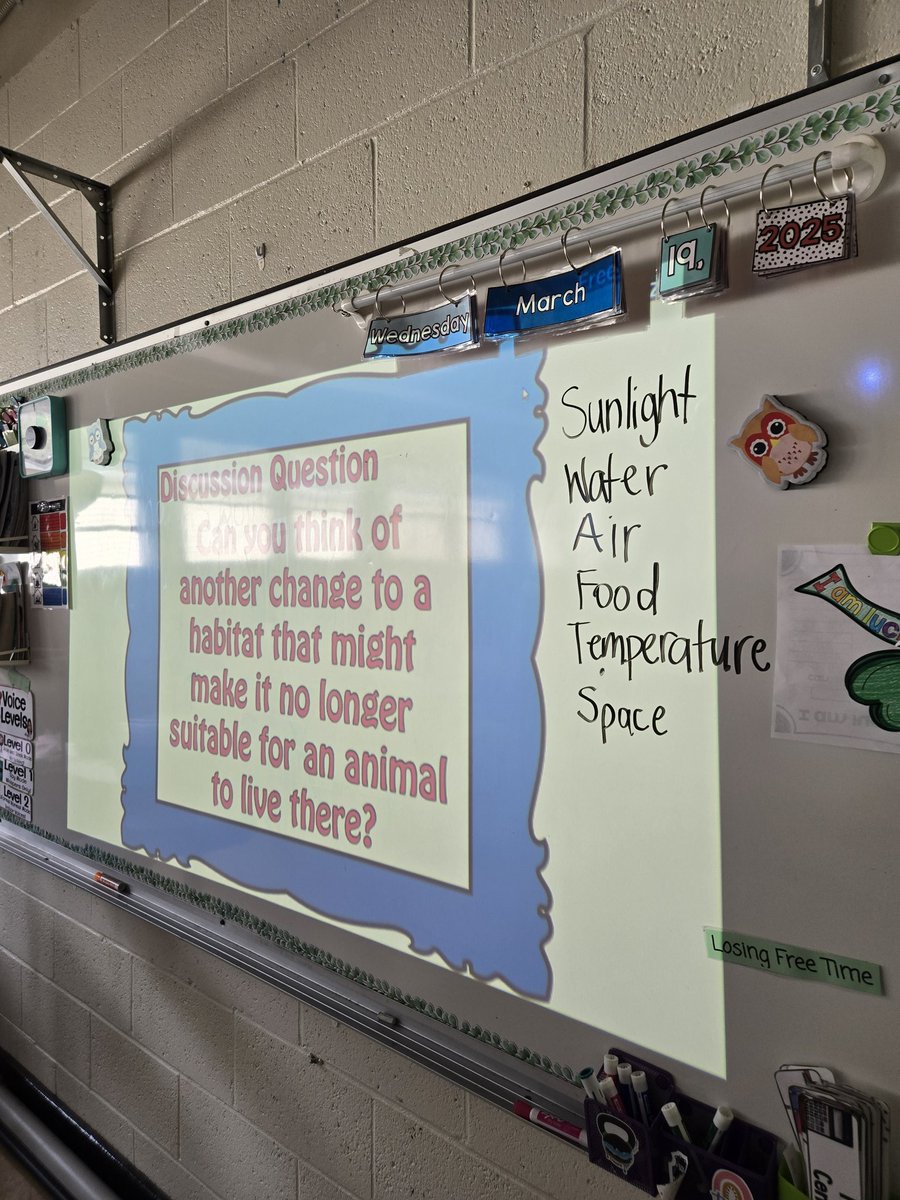 Wednesday March 19, 2025
Discussion Question
Can you think of
another change to a
habitat that might
make it no longer
suitable for an animal
to live there?
Sunlight
Water
Air
Food
Temperature
Space
Voice
Levels
Level 0
Level 1
Level 2
Losing Free Time